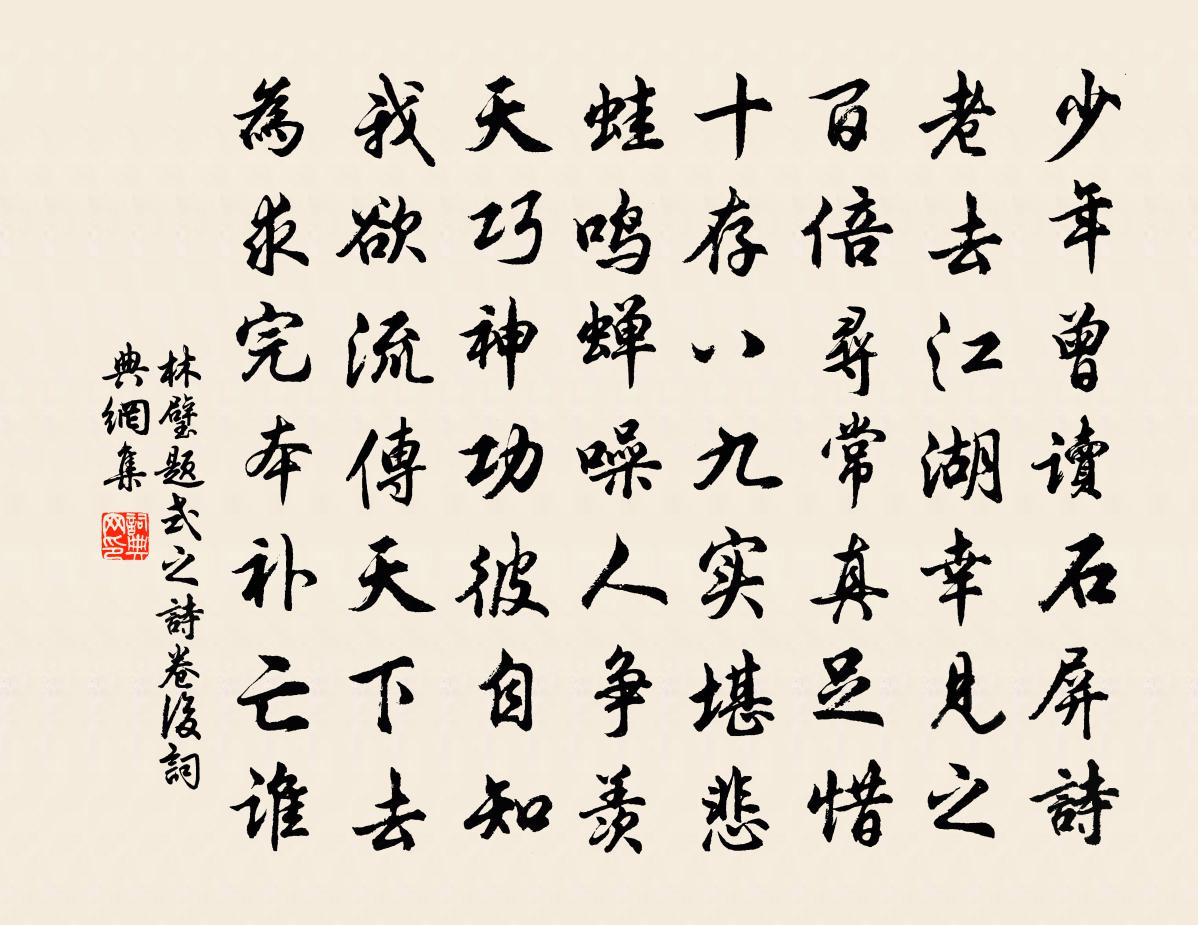 少年曾讀石屏詩
老去江湖幸見之
百倍尋常真足惜
十存八九实堪悲
蛙鸣蝉噪人争羨
天巧神功彼自知
我欲流傳天下去
為求完本补亡誰
林璧題式之詩卷後詞
典網集
詞典网印